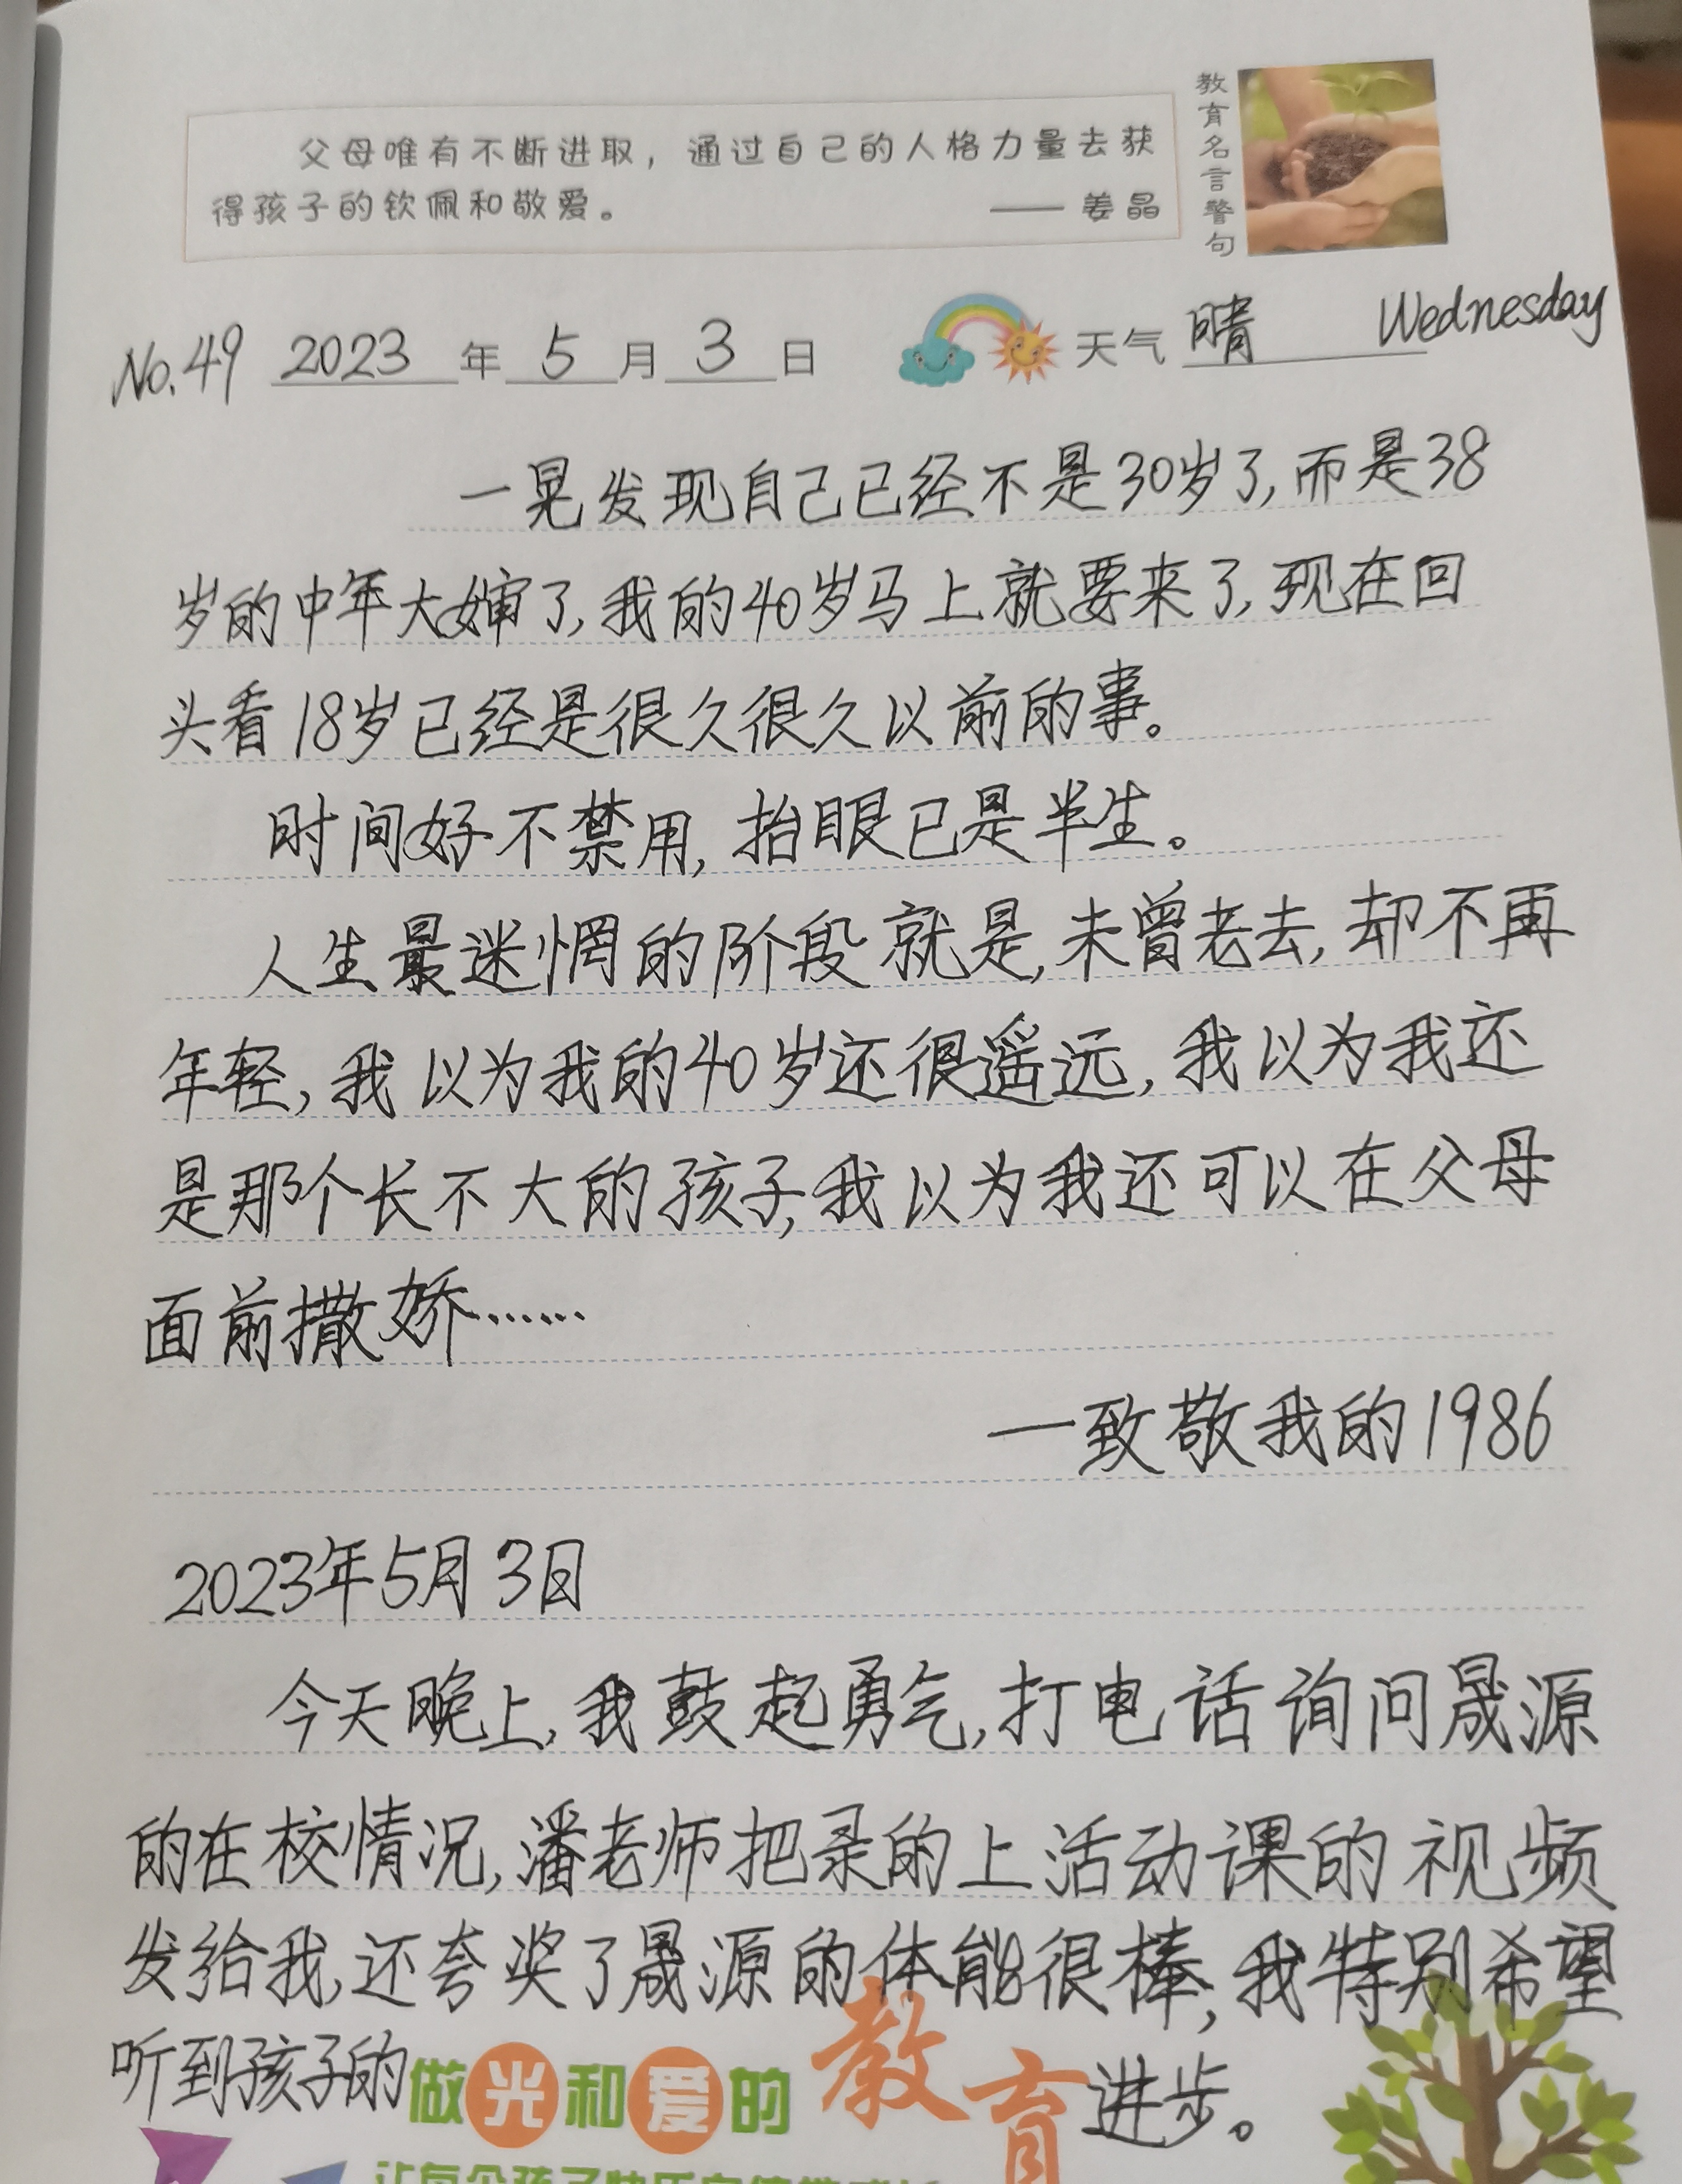 父母唯有不断进取，通过自己的人格力量去获
得孩子的钦佩和敬爱。 —— 姜晶
教育名言警句
No.49 2023 年 5 月 3 日 天气 晴 Wednesday
一晃发现自己已经不是30岁了,而是38
岁的中年大婶了,我的40岁马上就要来了,现在回
头看18岁已经是很久很久以前的事。
时间好不禁用,抬眼已是半生。
人生最迷惘的阶段就是,未曾老去,却不再
年轻,我以为我的40岁还很遥远,我以为我还
是那个长不大的孩子,我以为我还可以在父母
面前撒娇……
—致敬我的1986
2023年5月3日
今天晚上,我鼓起勇气,打电话询问晟源
的在校情况,潘老师把录的上活动课的视频
发给我,还夸奖了晟源的体能很棒,我特别希望
听到孩子的 进步。
做光和爱的教育